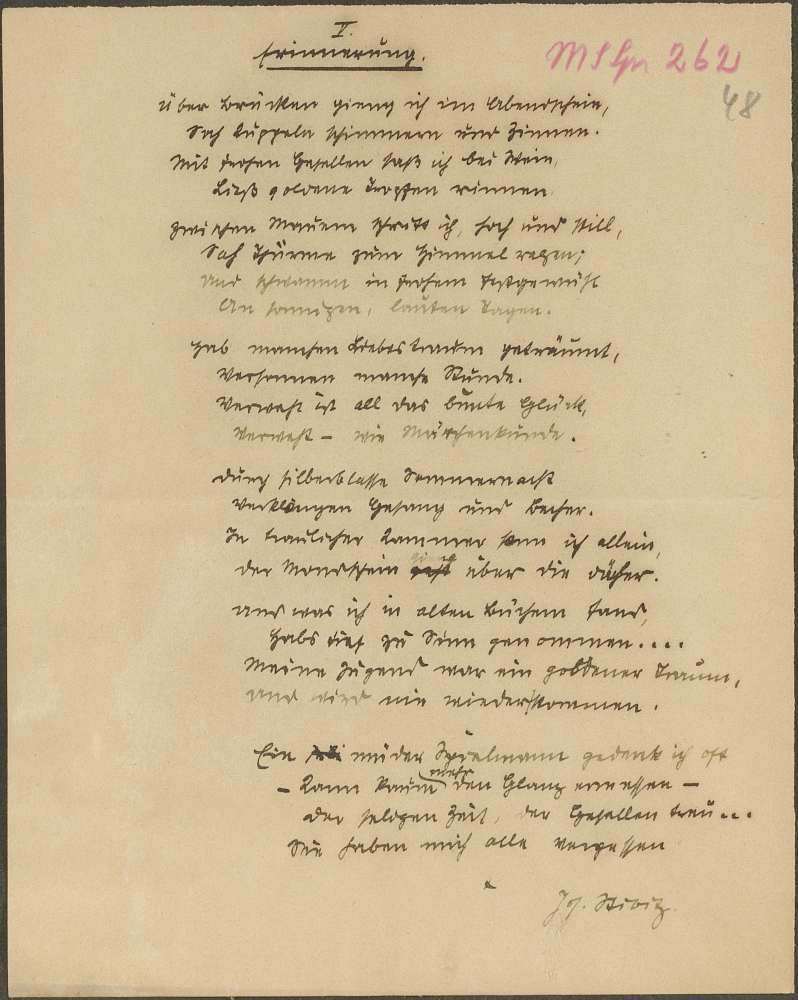 V.
Erinnerung.
MS Gn 262
48
Über Brücken gieng ich im Abendschein,
Sah Kuppeln schimmern und Zinnen.
Mit frohen Gesellen saß ich bei Wein,
Ließ goldene Tropfen rinnen.
Zwischen Mauern schritt ich, hoch und still,
Sah Thürme zum Himmel ragen;
Und schwamm in frohem Festgewühl
An sonnigen, lauten Tagen.
Hab manchen Liebestraum geträumt,
Versonnen manche Stunde.
Verweht ist all das bunte Glück,
Verweht – wie Märchenkunde.
Durch silberblasse Sommernacht
Verklangen Gesang und Becher.
In traulicher Kammer sann ich allein,
Der Mondschein über die Dächer.
Und was ich in alten Büchern fand,
Habs tief zu Sinn genommen....
Meine Jugend war ein goldener Traum,
Und wird nie wiederkommen.
Ein müder Spielmann gedenk ich oft
– Kann kaum mehr den Glanz ermessen –
Der seligen Zeit, der Gesellen treu...
Sie haben mich alle vergessen
Jos. Stibitz